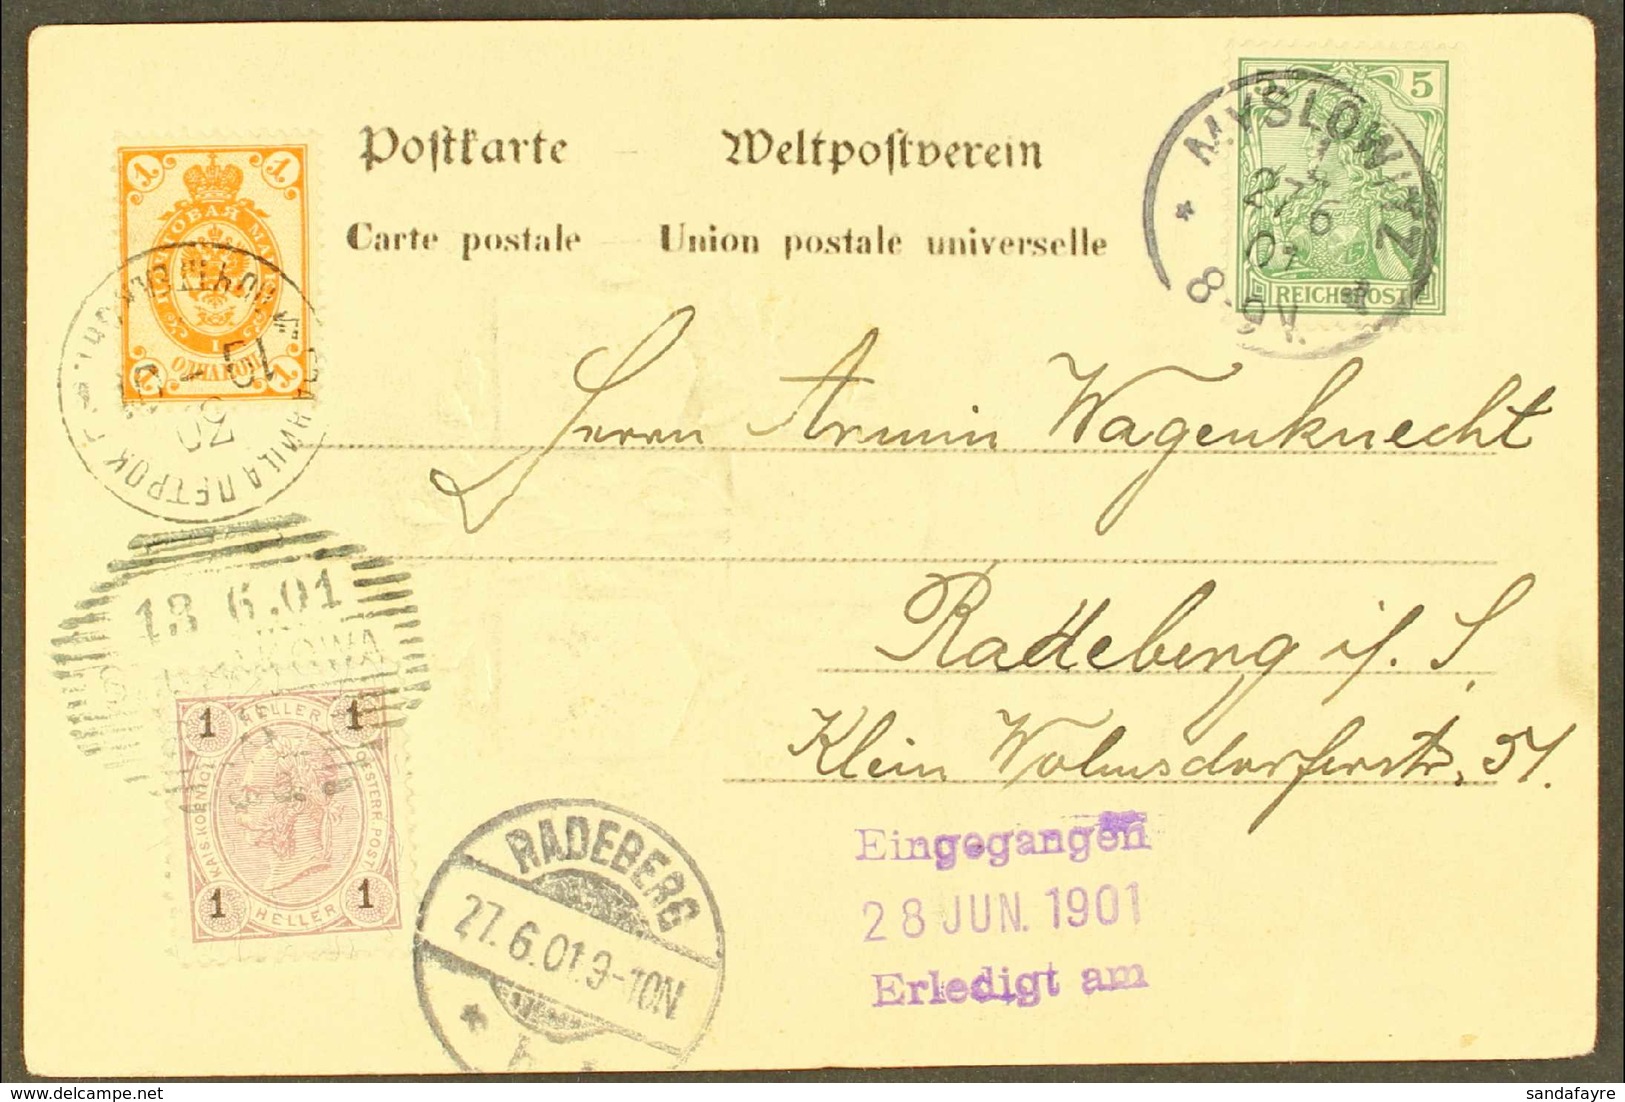 Postkarte Weltpostverein
Carte postale Union postale universelle
1 1
МАР
1
1 1
5
REICHSPOST
MYSLOWITZ
27 6
01
8-9V.
ГРАНИЦА ПЕТРОК. Г.
Herrn Armin Wagenknecht
Radeberg i/. S.
Klein Wolmsdorferstr. 51.
18 6.01
1 HELLER 1
KAIS. KOENIGL. OESTERR. POST
1 HELLER 1
RADEBERG
27.6.01.9-10N
Eingegangen
28 JUN. 1901
Erledigt am
www.delcampe.net
sandafayre